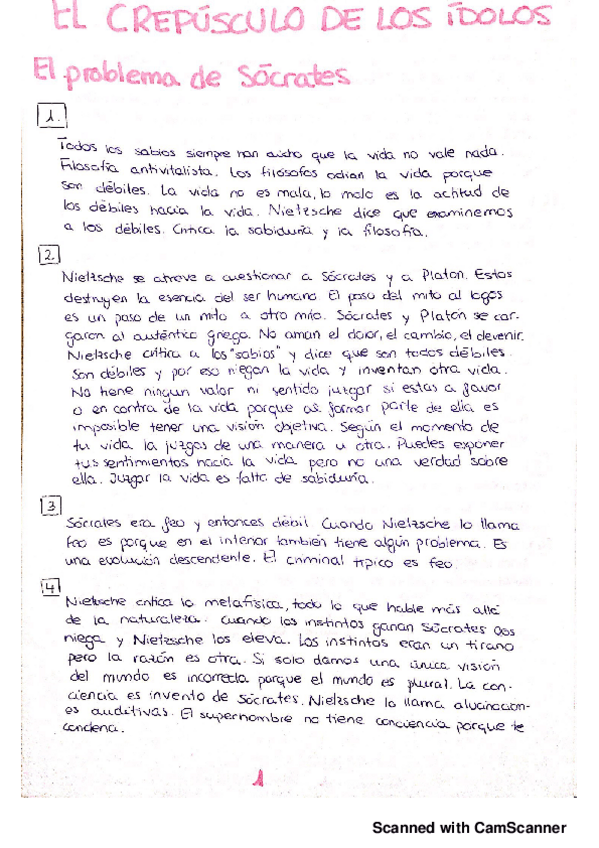 EL CREPÚSCULO DE LOS ÍDOLOS
El problema de Sócrates
1.
Todos los sabios siempre han dicho que la vida no vale nada.
Filosofía antivitalista. Los filósofos odian la vida porque
son débiles. La vida no es mala, lo malo es la actitud de
los débiles hacia la vida. Nietzsche dice que examinemos
a los débiles. Critica la sabiduría y la filosofía.
2.
Nietzsche se atreve a cuestionar a Sócrates y a Platón. Estos
destruyen la esencia del ser humano. El paso del mito al logos
es un paso de un mito a otro mito. Sócrates y Platón se car-
garon al auténtico griego. No aman el dolor, el cambio, el devenir.
Nietzsche critica a los "sabios" y dice que son todos débiles.
Son débiles y por eso niegan la vida y inventan otra vida.
No tiene ningun valor ni sentido juzgar si estas a favor
o en contra de la vida porque al formar parte de ella es
imposible tener una visión objetiva. Según el momento de
tu vida la juzgas de una manera u otra. Puedes exponer
tus sentimientos hacia la vida pero no una verdad sobre
ella. Juzgar la vida es falta de sabiduría.
3
Sócrates era feo y entonces débil. Cuando Nietzsche lo llama
feo es porque en el interior también tiene algún problema. Es
una evolución descendente. El criminal típico es feo.
4
Nietzsche critica lo metafísica, todo lo que hable más allá
de la naturaleza. Cuando los instintos ganan Sócrates los
niega y Nietzsche los eleva. Los instintos eran un tirano
pero la razón es otra. Si solo damos una única visión
del mundo es incorrecta porque el mundo es plural. La con-
ciencia es invento de Sócrates. Nietzsche lo llama alucinacion-
es auditivas. El superhombre no tiene conciencia porque te
condena.
1
Scanned with CamScanner